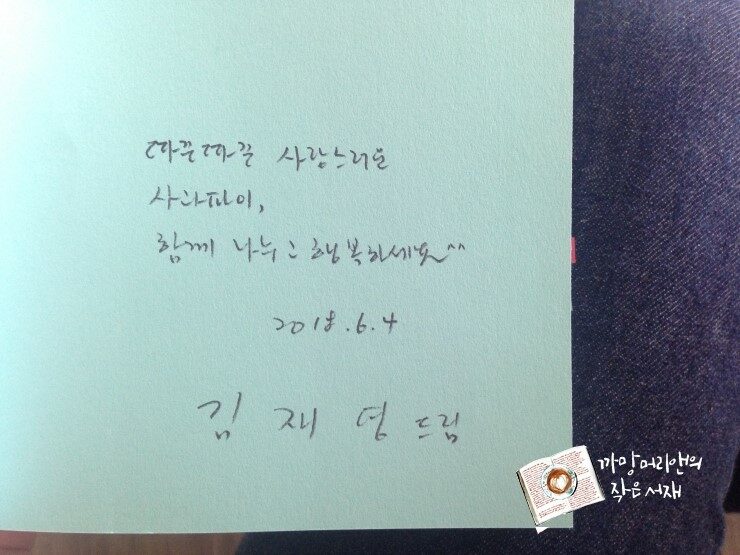 따끈따끈 사랑스러운
사과파이,
함께 나누고 행복하세요^^
2018.6.4
김 재 영 드림
까망머리앤의
작은서재